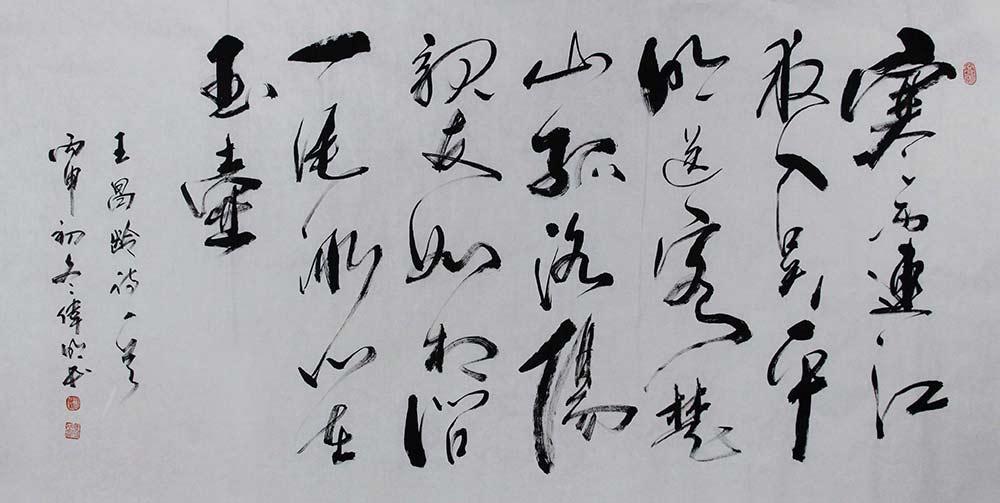 寒雨連江
夜入吴平
明送客楚
山孤洛陽
親友如相问
一片冰心在
玉壺
王昌齡诗一首
丙申初冬偉明书